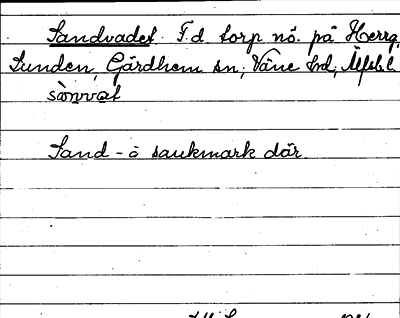 Sandvadet F.d. torp nö. på Herrg.
Lunden, Gärdhem sn, Väne hd, Älfsb. l.
sànvat
Sand - o saukmark där.